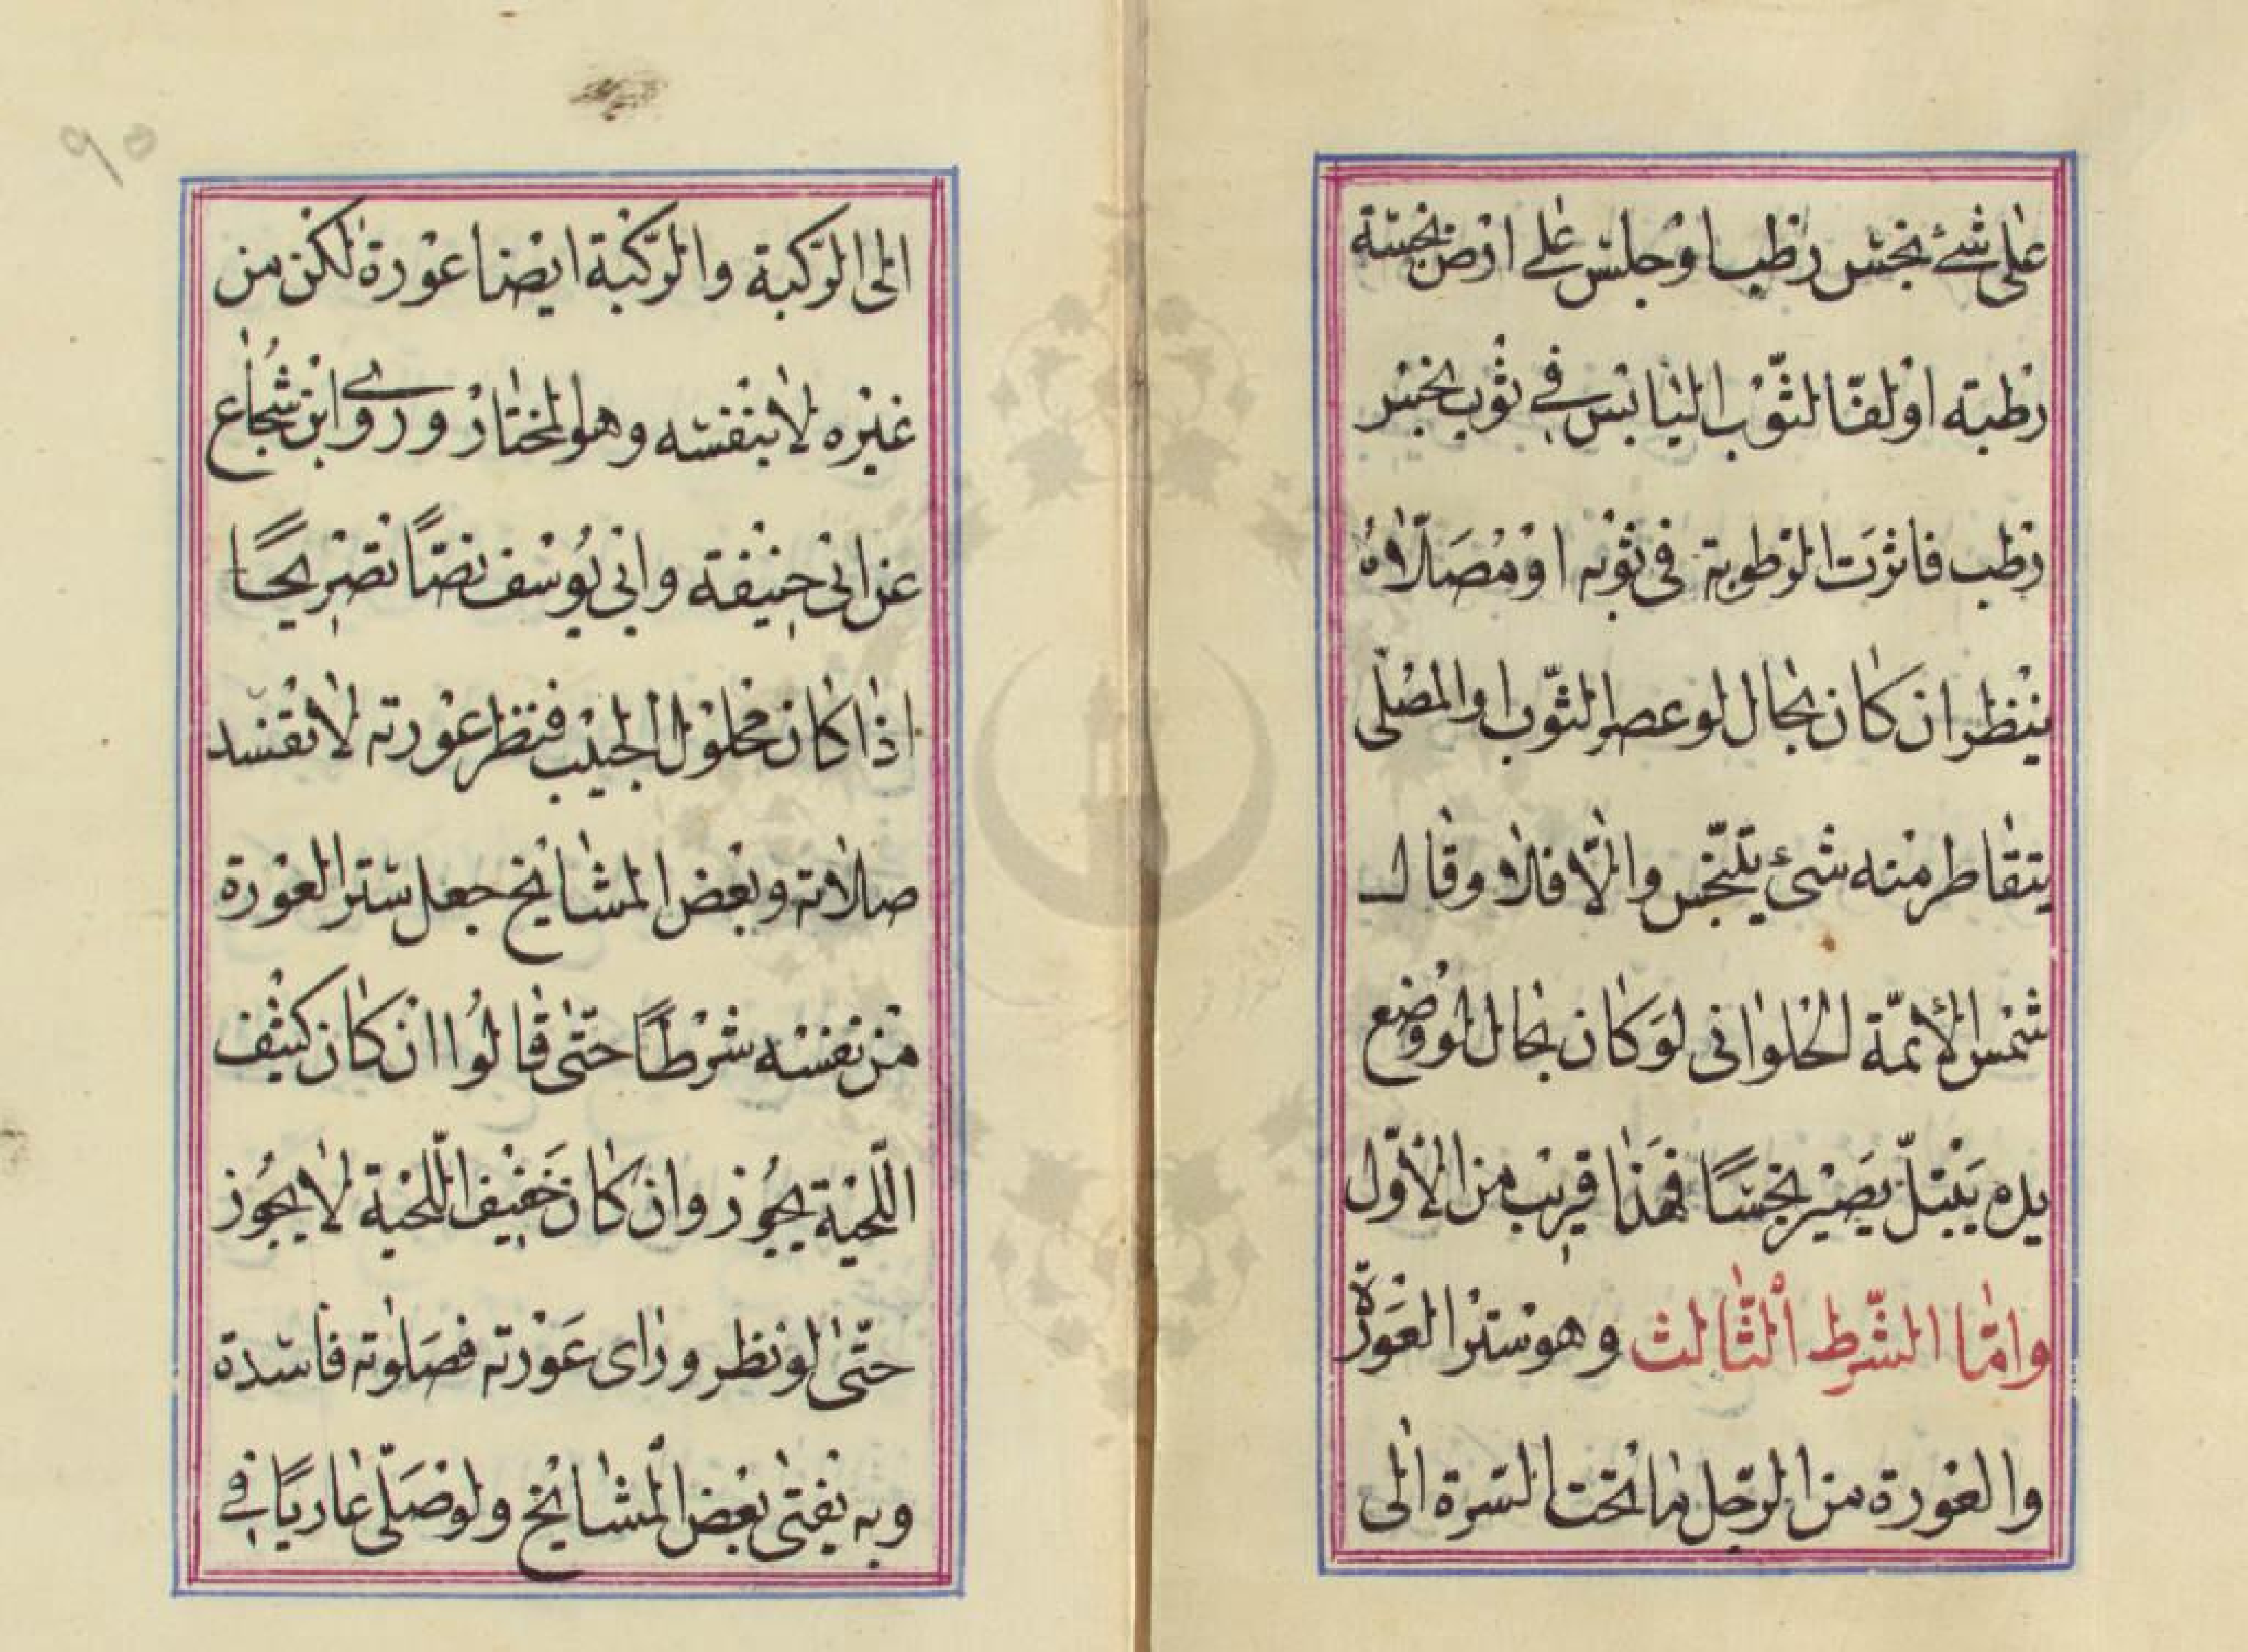 على شئ نجس رطب او جلس على ارض نجسة
رطبته او لف الثوب اليابس في ثوب نجس
رطب فاثرت الرطوبة في ثوبه او مُصَلّاهُ
ينظر ان كان بحال لو عصر الثوب او المصلى
يتقاطر منه شئ يتنجس والّا فلا وقال
شمس الأئمّة الحلواني لوَ كان بحال لو وُضع
يده يَبتلّ يَصير نجسًا فهَذا قريب من الاوّل
وامّا الشّرط الثّالث وهو ستر العَورَة
والعورة من الرّجل ما تحت السّرة الى
٩٥
الى الرّكبة والرّكبة ايضا عورة لكن من
غيره لا بنفسه وهو المختار وروى ابن شُجاع
عن ابي حنيفة وابي يُوسف نصّاً تصريحًا
اذا كان محلول الجيب فنظر عورته لا تفسد
صلاته وبعض المشايخ جعل ستر العورة
من نفسه شرطًا حتّى قالُوا ان كان كثيف
اللّحية يجُوز وان كان خَفيف اللّحية لا يجُوز
حتّى لو نظر وراى عَورته فصَلوته فاسدة
وبه يفتى بعض المشايخ ولو صَلّى عاريًا في